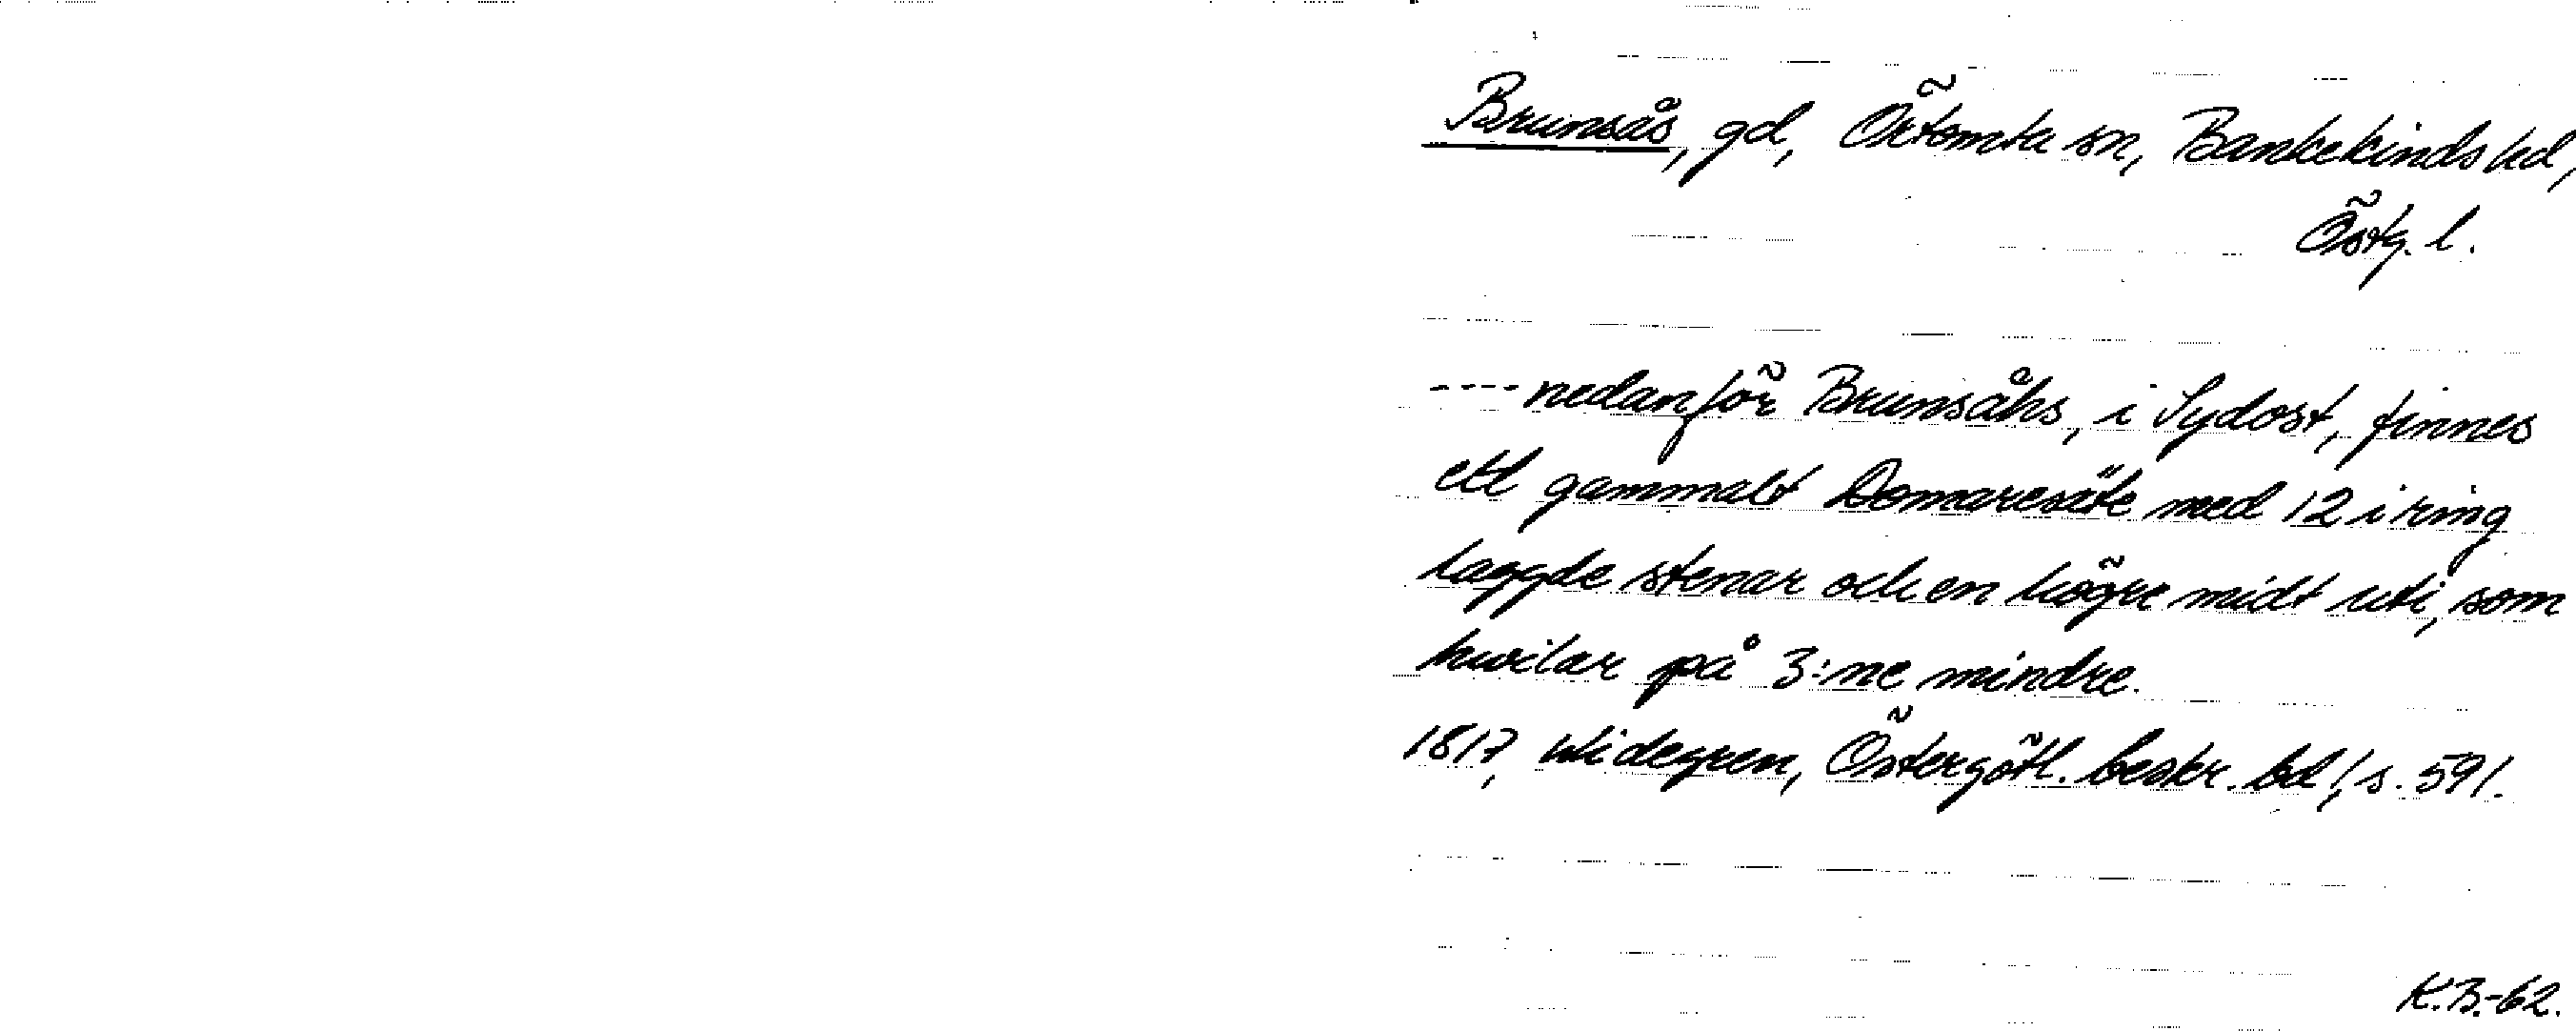 Brunsås, gd, Örtomta sn, Bankekinds hd,
Östg. l.
---- nedanför Brunsåhs, i Sydost, finnes
ett gammalt Domaresäte med 12 i ring
laggde stenar och en högre midt uti, som
hwilar på 3:ne mindre.
1817, Widegren, Östergötl. beskr. bd 1, s. 591.
K.B.-62.